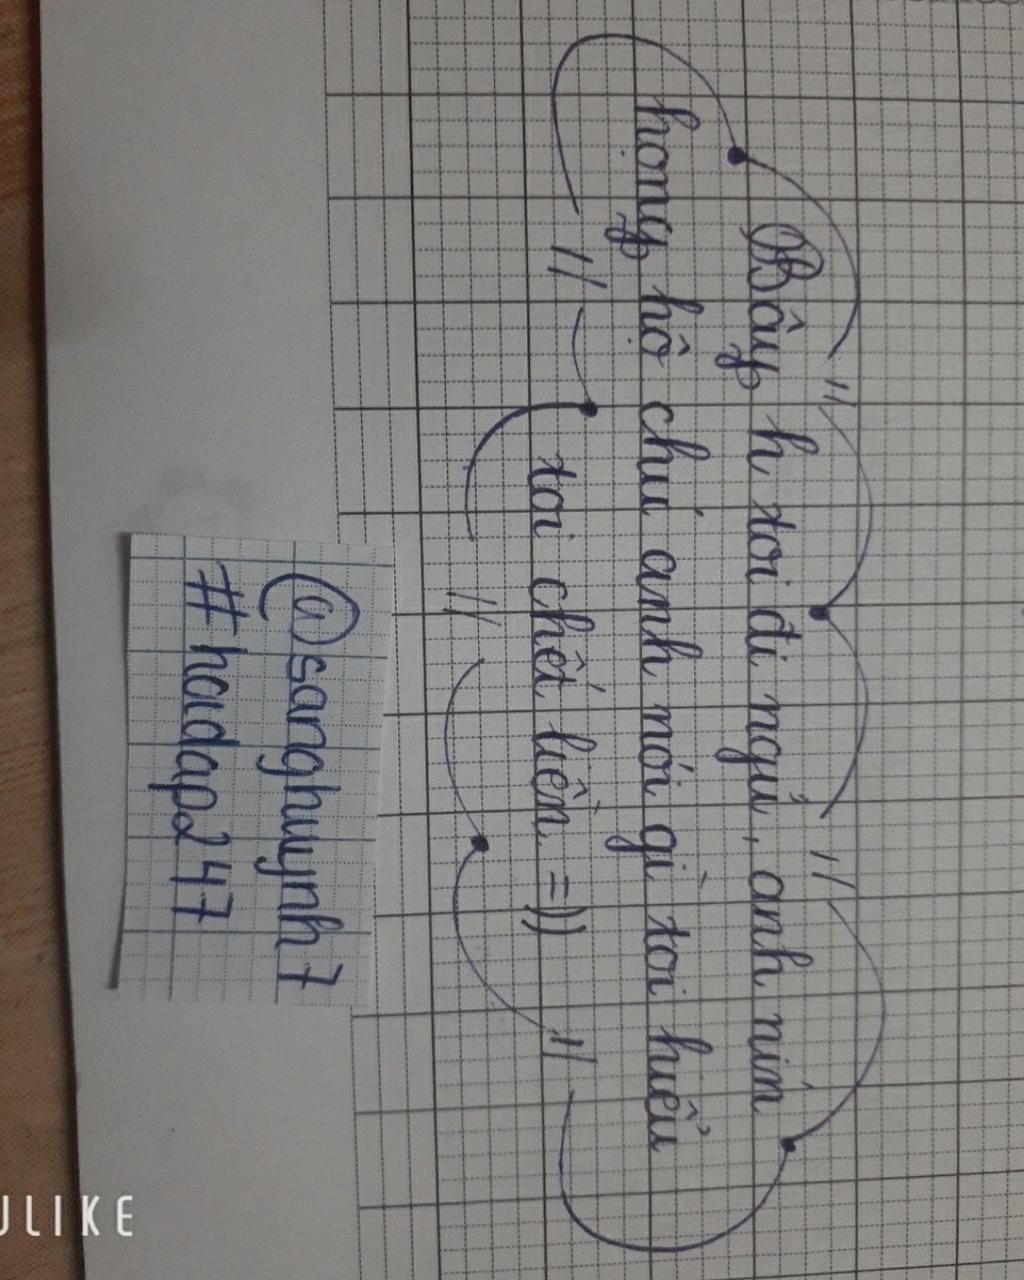 Bây h toi đi ngủ, anh nín
họng hộ chứ anh nói gì toi hiểu
toi chết liền =))
@sanghuynh7
#hoidap247
ULIKE